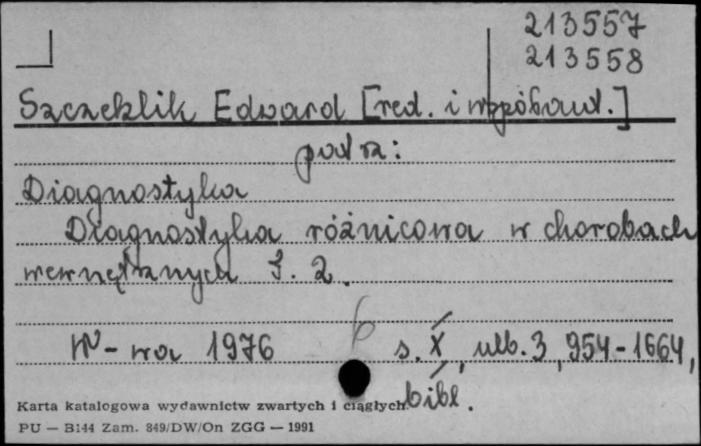 213557
213558
Szczeklik Edward [red. i współaut.]
patrz:
Diagnostyka
Diagnostyka różnicowa w chorobach
wewnętrznych T. 2.
W-wa 1976 b s. X, nlb. 3, 954-1664,
bibl.
Karta katalogowa wydawnictw zwartych i ciągłych
PU — B144 Zam. 849/DW/On ZGG — 1991